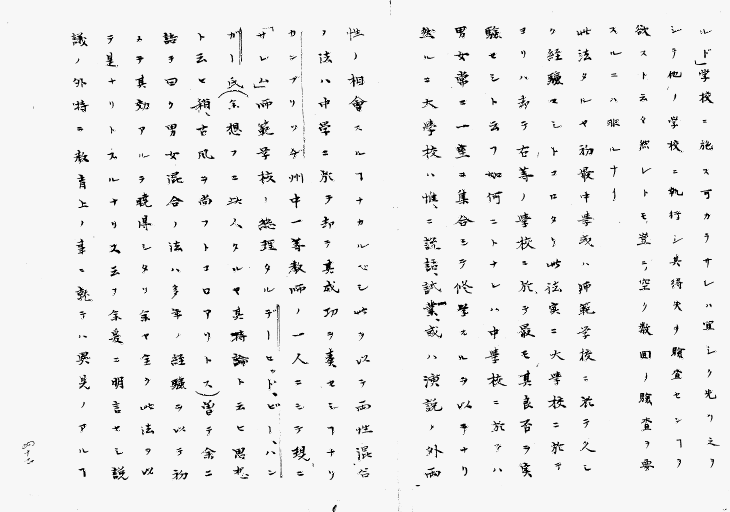 ルド」学校ニ施ス可カラサレハ宜シク先ツ之ヲ
シテ他ノ学校ニ執行シ其得失ヲ験査センコヲ
欲スト云々然レトモ豈ニ空ク数回ノ験査ヲ要
スルニハ非ルナリ
此法タルヤ初最中学或ハ師範学校ニ於テ久シ
ク経験セシトコロタリ此法実ニ大学校ニ於テ
ヨリハ却テ右等ノ学校ニ於テ最モ其良否ヲ実
験セシト云フ如何ニトナレハ中学校ニ於テハ
男女常ニ一室ニ集合シテ修学スルヲ以テナリ
然ルニ大学校ハ惟ニ説話試業或ハ演説ノ外両
性ノ相會スルコナカルベシ此ヲ以テ両性混合
ノ法ハ中学ニ於テ却テ真成功ヲ奏セシコナリ
カンブリツチ州中一等教師ノ一人ニシテ現ニ
「サレム」師範学校ノ総理タルデーロッド、ビー、ハン
ガー氏(余想フニ此人タルヤ真特論ト云ヒ思想
ト云ヒ稍古風ヲ尚フトコロアリトス)曽テ余ニ
語テ曰ク男女混合ノ法ハ多年ノ経験ヲ以テ初
メテ其効アルヲ暁得シタリ余ヤ全ク此法ヲ以
テ是ナリトスルナリ又云フ余爰ニ明言セシ説
議ノ外特ニ教育上ノ事ニ就テハ異見ノアルコ